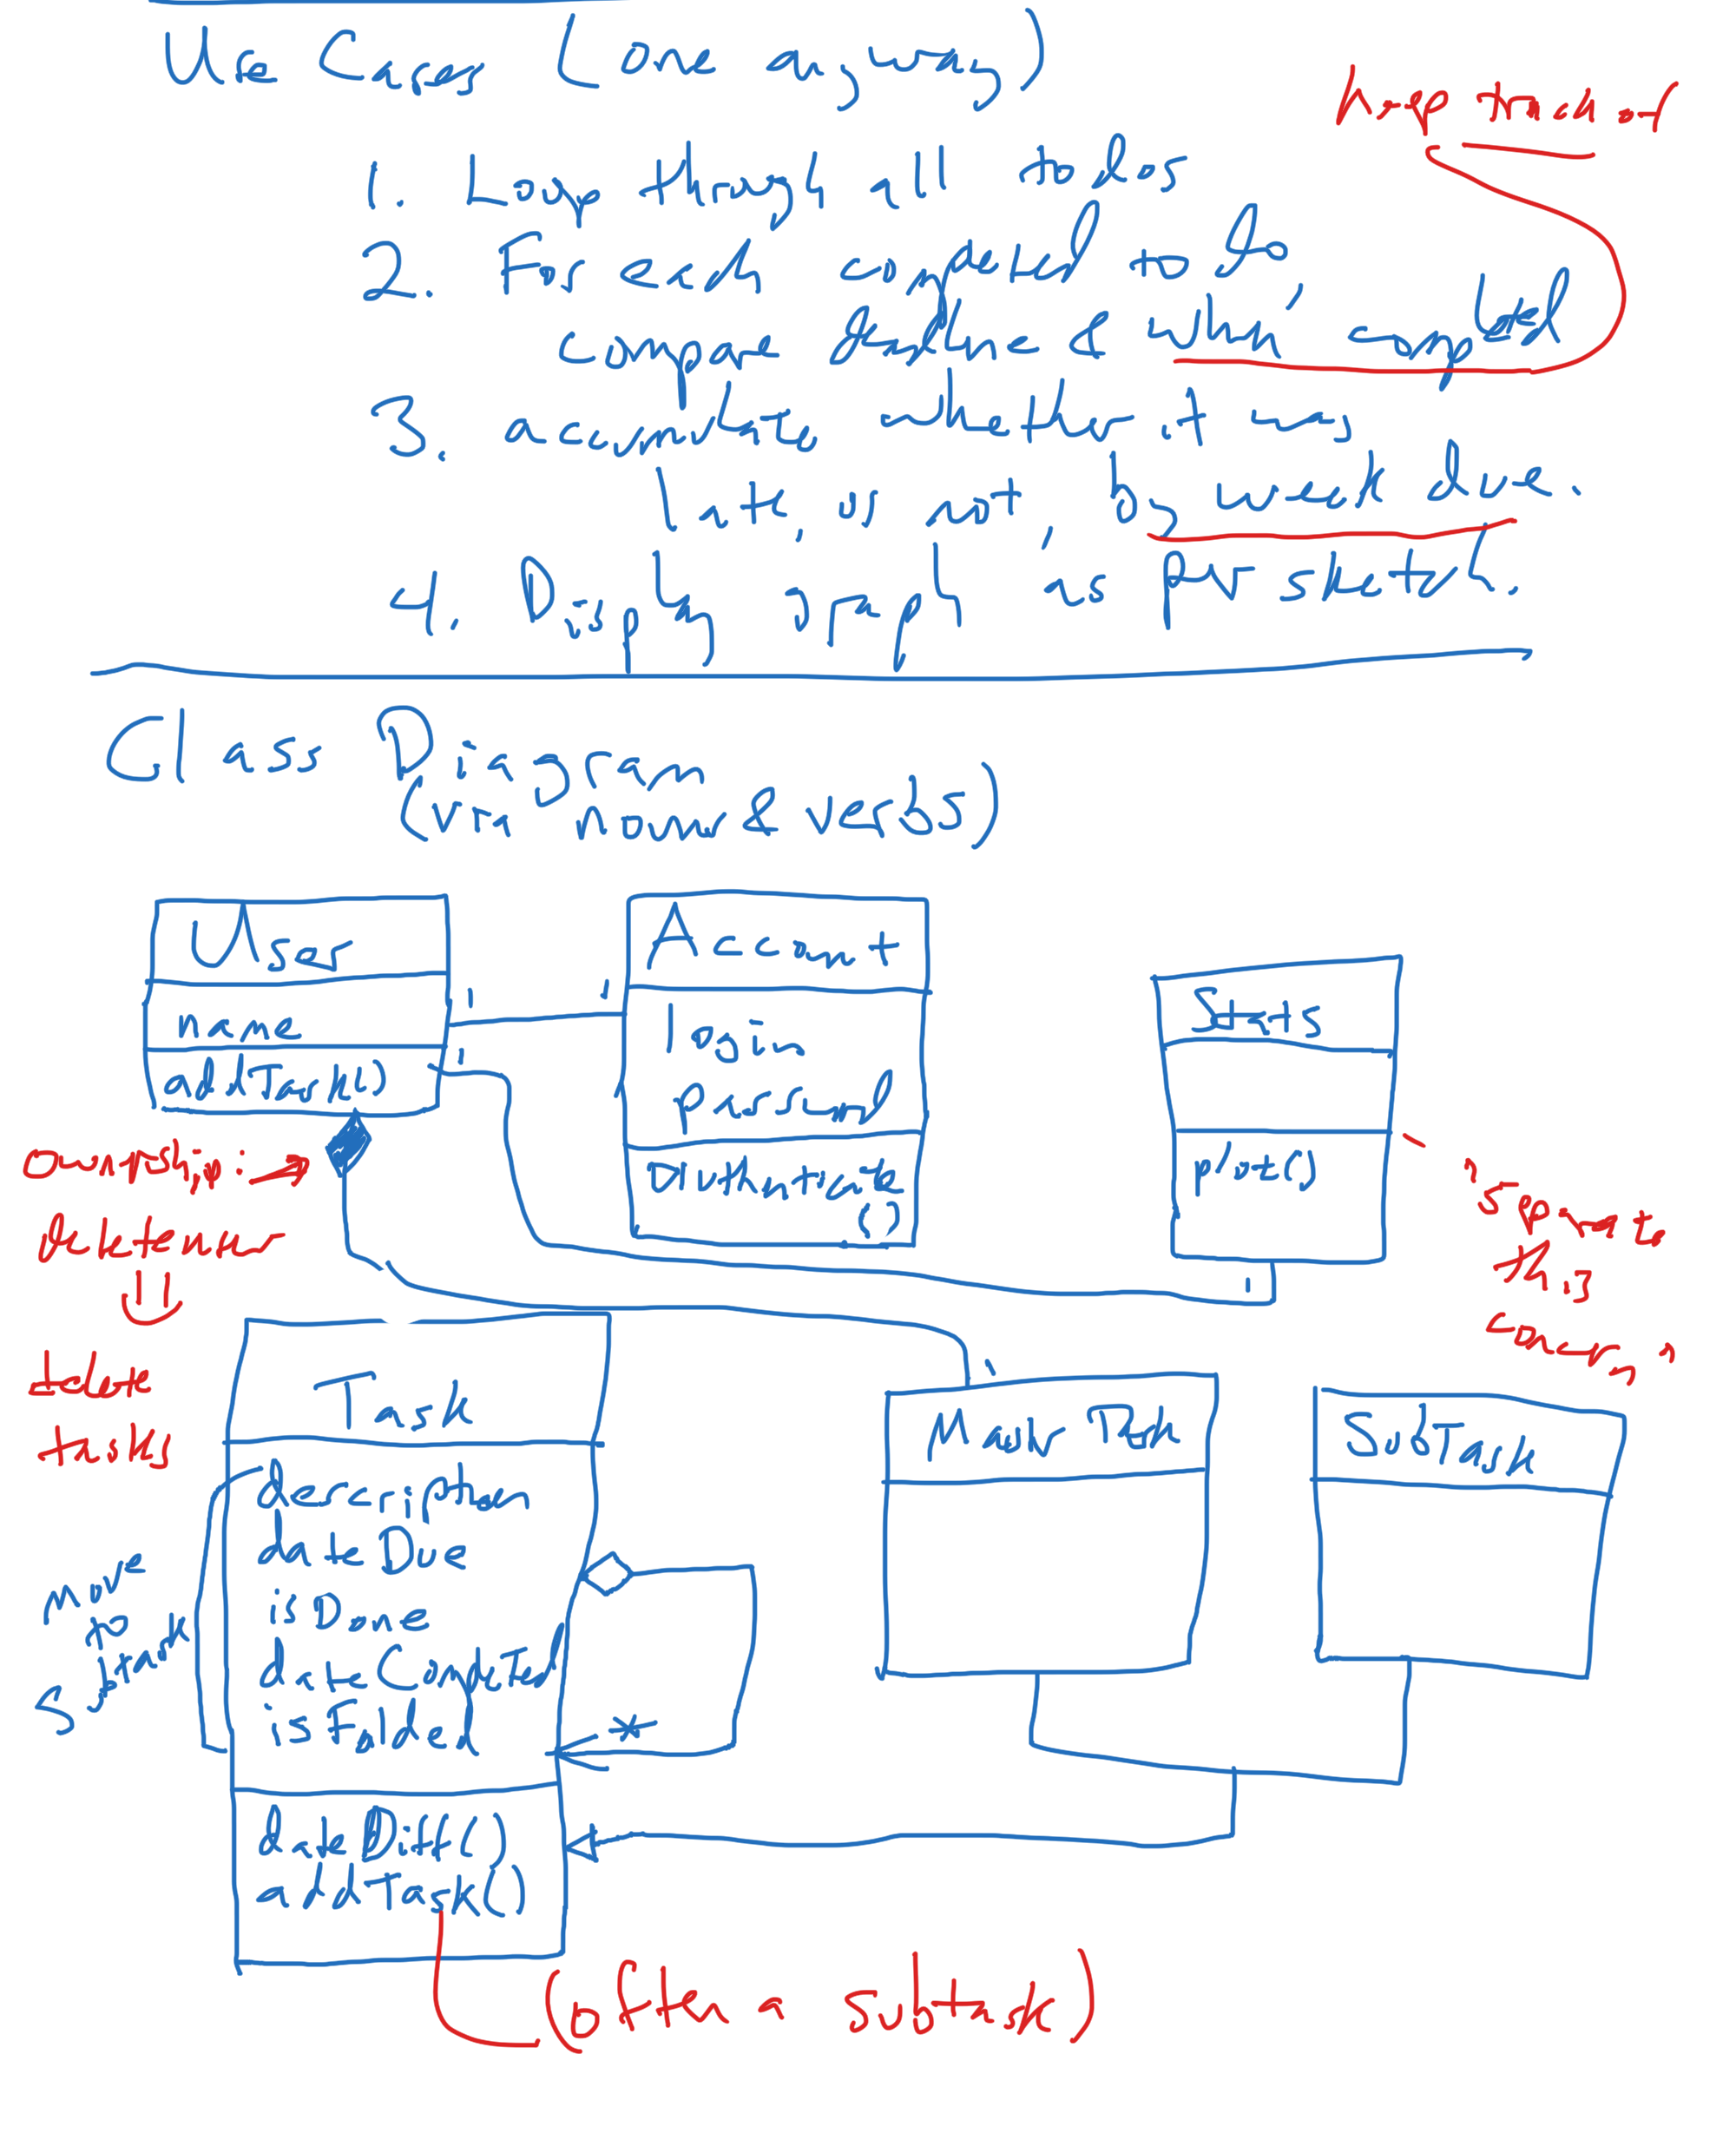 Use Case (one, anyway)
keep track of
1. Loop through all todos
2. For each completed todo,
compare deadline & when completed
3. accumulate whether it was
late, or not, by week due.
4. Display graph as per sketch.
Class Diagram
(via nouns & verbs)
User
name
addTask()
1
1
1
Account
login
password
authenticate
()
Stats
plot()
1
"Separate
this
concern"
ownership:
delete user
delete
tasks
Task
description
dateDue
isDone
dateCompleted
isFolded
dateDiff()
addTask()
*
Move
to
Subtask
1
MainTask
SubTask
(often a subtask)